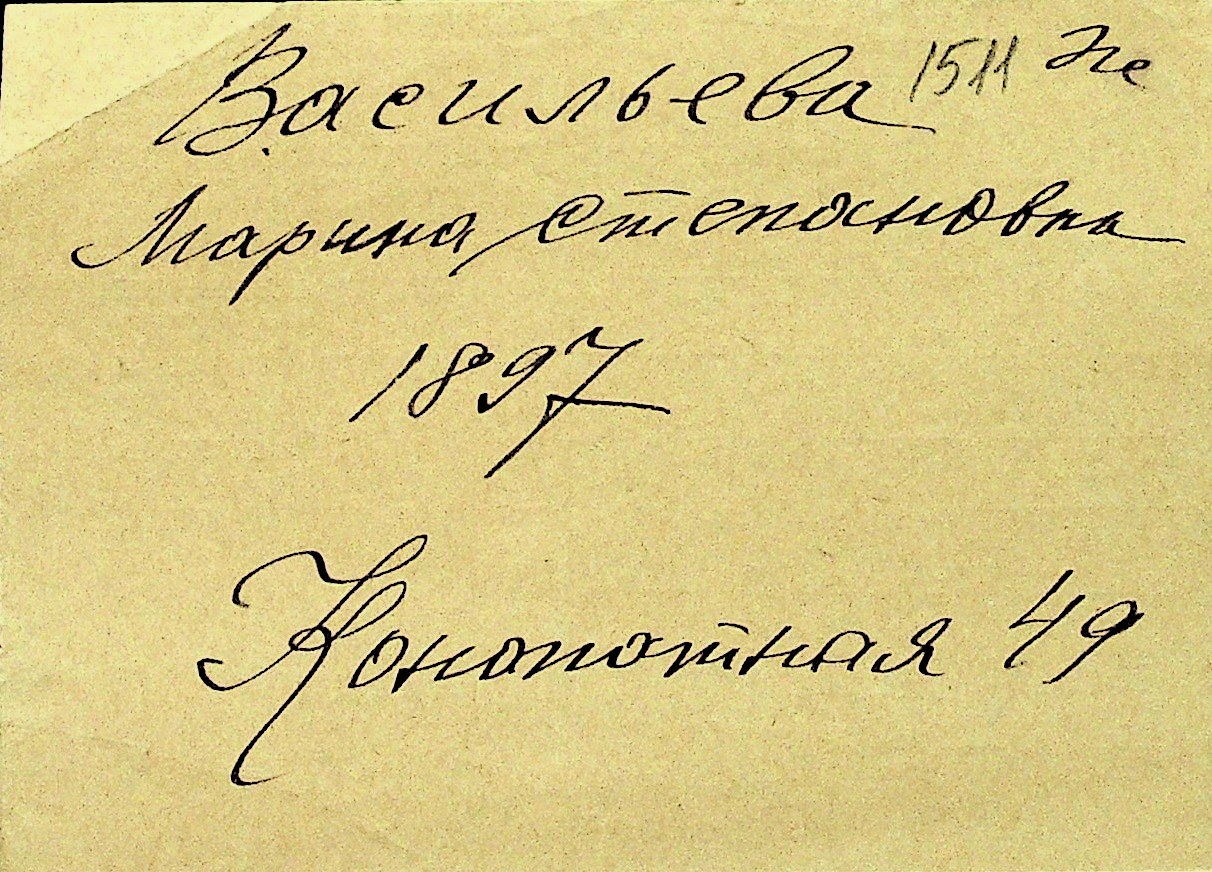 Васильева 1511
Марина Степановна
1897
Конопатная 49